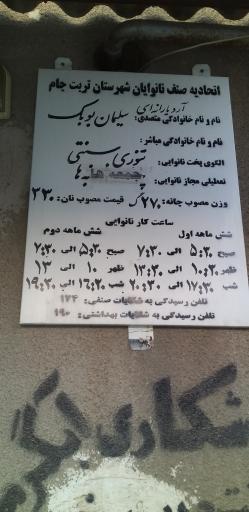 اتحادیه صنف نانوایان شهرستان تربت جام
آرد یارانه‌ای
نام و نام خانوادگی متصدی: سلیمان بوبک
نام و نام خانوادگی مباشر:
الگوی پخت نانوایی: تنوری سنتی
تعطیلی مجاز نانوایی: جمعه ها
وزن مصوب چانه: ۲۷۰ گ قیمت مصوب نان: ۲۳۰
ساعت کار نانوایی
شش ماهه اول شش ماهه دوم
صبح ۵:۳۰ الی ۷:۳۰ صبح ۵:۳۰ الی ۷:۳۰
ظهر ۱۰:۳۰ الی ۱۳:۳۰ ظهر ۱۰ الی ۱۳
شب ۱۷:۳۰ الی ۲۰:۳۰ شب ۱۶:۳۰ الی ۱۹:۳۰
تلفن رسیدگی به شکایات صنفی: ۱۲۴
تلفن رسیدگی به شکایات بهداشتی: ۱۹۰
شکاری